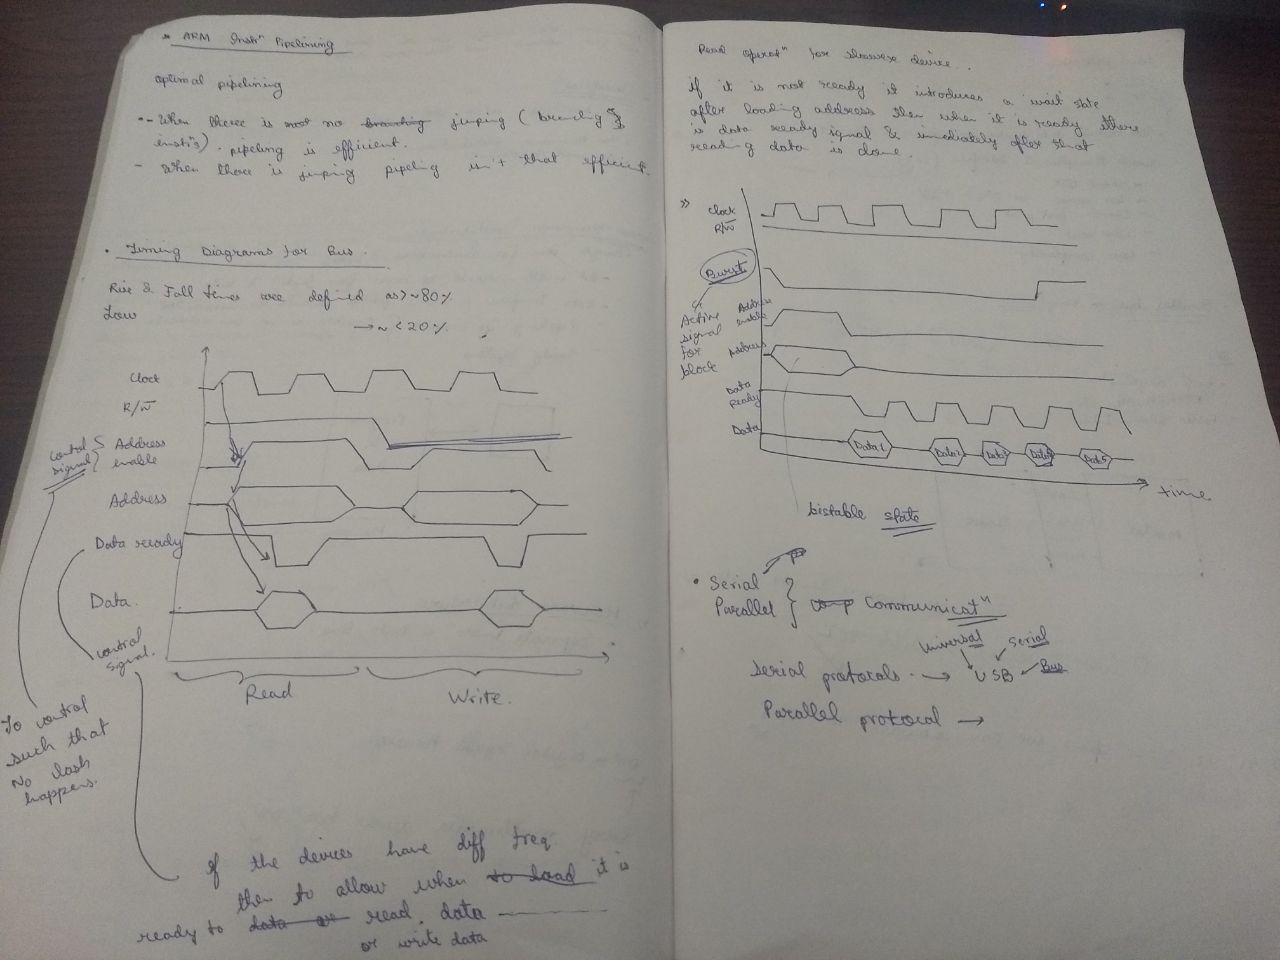 * ARM Instrⁿ Pipelining
optimal pipelining
- When there is no jumping (branching
instrⁿs). pipeling is efficient.
- When there is jumping pipeling isn't that efficient.
• Timing Diagrams for Bus.
Rise & Fall times are defined as > ~80%
Low
→ ~ <20%
Clock
R/W̅
Address
enable
control
signal
Address
Data ready
Data.
control
signal.
Read
Write.
To control
such that
No clash
happens.
If the devices have diff freq
then to allow when to load it is
ready to data or read data
or write data
Read operatⁿ for slower device..
if it is not ready it introduces a wait state
after loading address then when it is ready there
is data ready signal & immediately after that
reading data is done.
» Clock
R/W̅
Burst
Active
signal
for
block
Address
enable
Address
Data
Ready
Data
Data 1
Data 2
Data 3
Data 4
Data 5
time
bistable state
• Serial
Parallel
Communicatⁿ
Universal
Serial
Serial protocals. → USB
Bus
Parallel protocal →